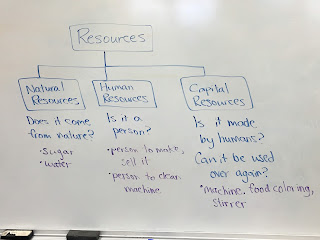 Resources
Natural
Resources
Does it come
from nature?
•sugar
•water
Human
Resources
Is it a
person?
•person to make,
sell it
•person to clean
machine
Capital
Resources
Is it made
by humans?
Can it be used
over again?
•machine, food coloring,
stirrer